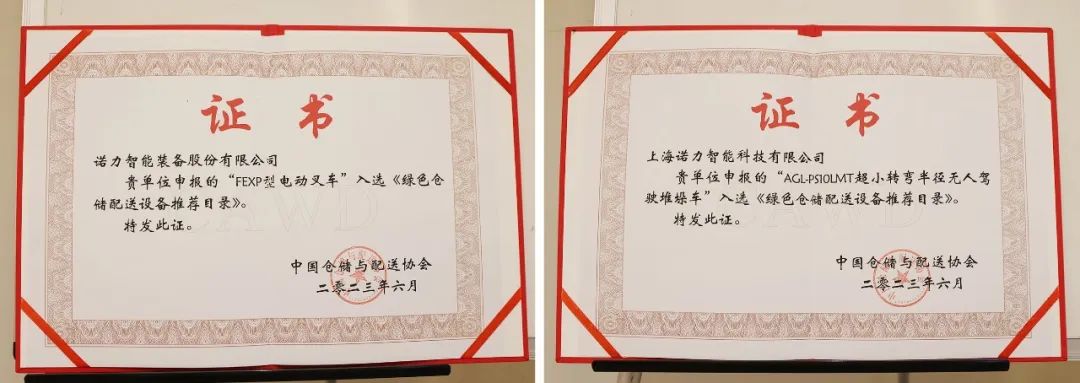 证 书
诺力智能装备股份有限公司
贵单位申报的“FEXP型电动叉车”入选《绿色仓
储配送设备推荐目录》。
特发此证。
中国仓储与配送协会
二零二三年六月
证 书
上海诺力智能科技有限公司
贵单位申报的“AGL-PS10LMT超小转弯半径无人驾
驶堆垛车”入选《绿色仓储配送设备推荐目录》。
特发此证。
中国仓储与配送协会
二零二三年六月